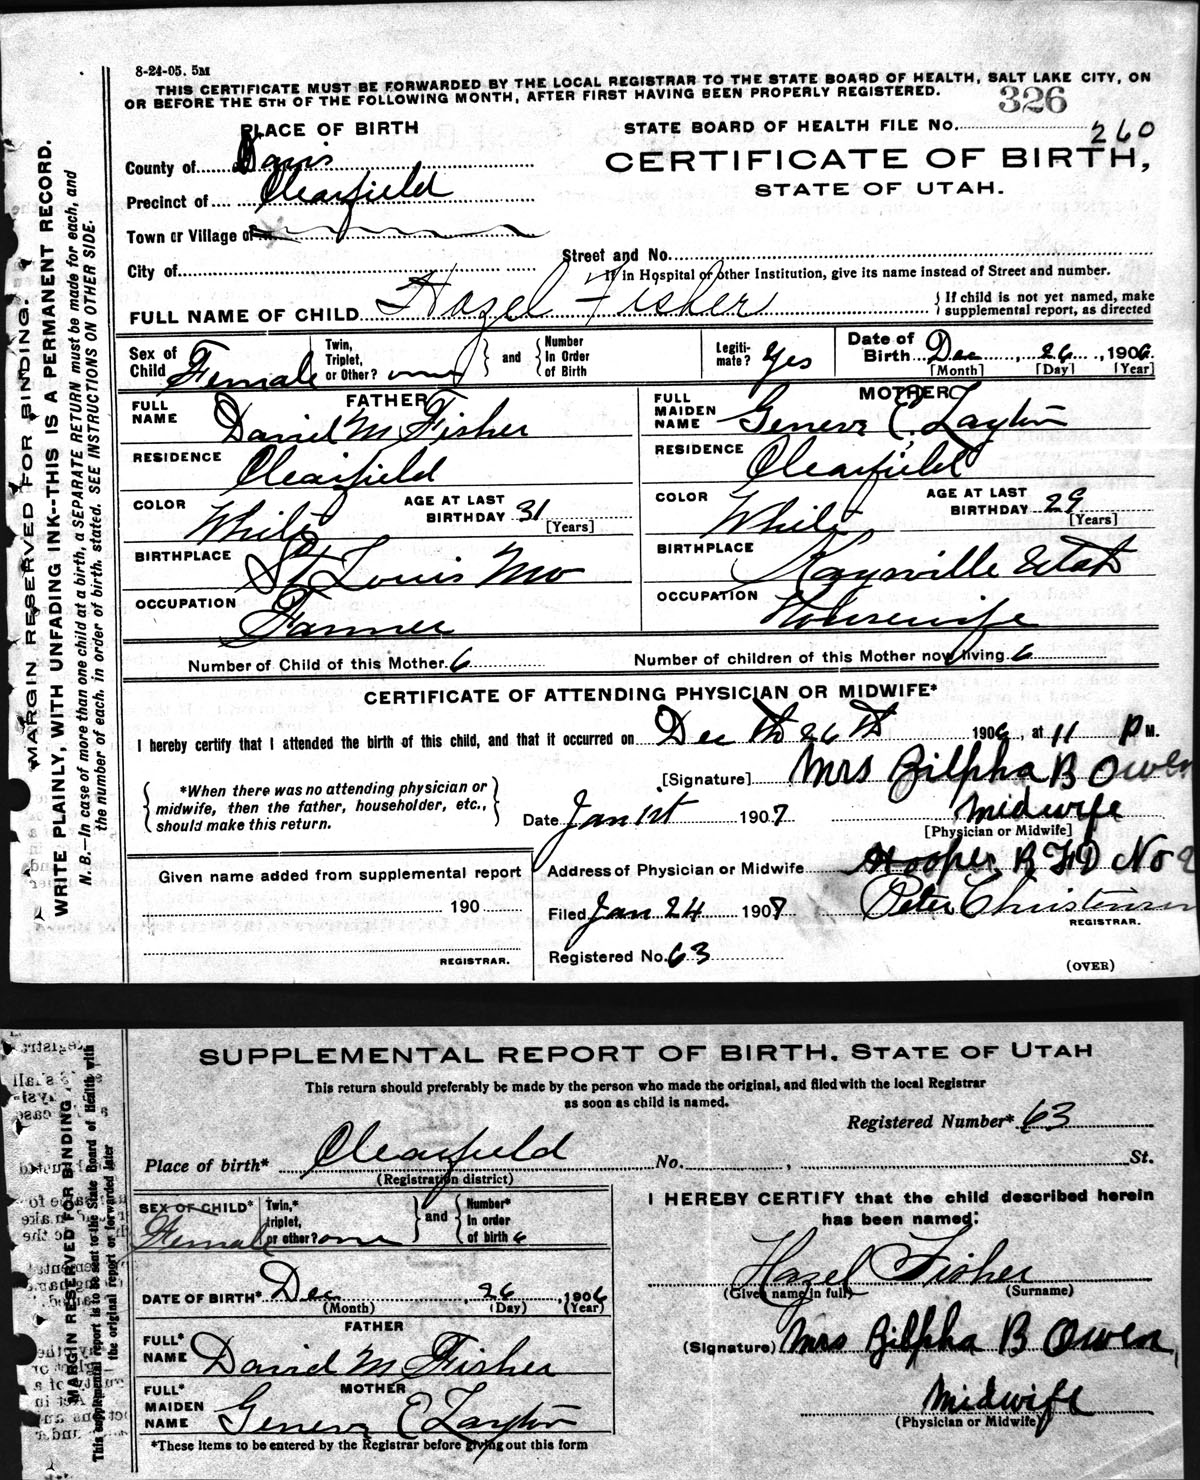 8-24-05. 5M
THIS CERTIFICATE MUST BE FORWARDED BY THE LOCAL REGISTRAR TO THE STATE BOARD OF HEALTH, SALT LAKE CITY, ON
OR BEFORE THE 5TH OF THE FOLLOWING MONTH, AFTER FIRST HAVING BEEN PROPERLY REGISTERED.
326
PLACE OF BIRTH
STATE BOARD OF HEALTH FILE No. 260
County of Davis
CERTIFICATE OF BIRTH,
STATE OF UTAH.
Precinct of Clearfield
Town or Village of
Street and No.
City of
If in Hospital or other Institution, give its name instead of Street and number.
FULL NAME OF CHILD Hazel Fisher
} If child is not yet named, make
supplemental report, as directed
Sex of Child Female
Twin, Triplet, or Other? one } and { Number In Order of Birth
Legiti-mate? Yes
Date of Birth Dec, 26, 1906.
[Month] [Day] [Year]
FATHER
FULL NAME David M Fisher
RESIDENCE Clearfield
COLOR White
AGE AT LAST BIRTHDAY 31 [Years]
BIRTHPLACE St Louis Mo
OCCUPATION Farmer
MOTHER
FULL MAIDEN NAME Geneva E. Layton
RESIDENCE Clearfield
COLOR White
AGE AT LAST BIRTHDAY 29 [Years]
BIRTHPLACE Kaysville Utah
OCCUPATION Housewife
Number of Child of this Mother. 6
Number of children of this Mother now living 6
CERTIFICATE OF ATTENDING PHYSICIAN OR MIDWIFE*
I hereby certify that I attended the birth of this child, and that it occurred on Dec th 26th 1906, at 11 P M.
{ *When there was no attending physician or
midwife, then the father, householder, etc.,
should make this return. }
[Signature] Mrs Zilpha B Owen
Date Jan 1st 1907
Midwife
[Physician or Midwife]
Given name added from supplemental report
190
REGISTRAR.
Address of Physician or Midwife Hooper R F D No 2
Filed Jan 24 1907
Peter Christensen
REGISTRAR.
Registered No. 63
(OVER)
MARGIN RESERVED FOR BINDING.
WRITE PLAINLY, WITH UNFADING INK--THIS IS A PERMANENT RECORD.
N. B.—In case of more than one child at a birth, a SEPARATE RETURN must be made for each, and
the number of each, in order of birth, stated. SEE INSTRUCTIONS ON OTHER SIDE.
SUPPLEMENTAL REPORT OF BIRTH. STATE OF UTAH
This return should preferably be made by the person who made the original, and filed with the local Registrar
as soon as child is named.
Registered Number* 63
Place of birth* Clearfield No. , St.
(Registration district)
SEX OF CHILD* Female
Twin,* triplet, or other? one } and { Number* In order of birth 6
DATE OF BIRTH* Dec, 26, 1906
(Month) (Day) (Year)
FATHER
FULL* NAME David M Fisher
MOTHER
FULL* MAIDEN NAME Geneva E Layton
*These items to be entered by the Registrar before giving out this form
I HEREBY CERTIFY that the child described herein
has been named:
Hazel Fisher
(Given name in full) (Surname)
(Signature) Mrs Zilpha B Owen,
Midwife
(Physician or Midwife)
MARGIN RESERVED FOR BINDING
This supplemental report is to be sent to the State Board of Health with
the original report or forwarded later